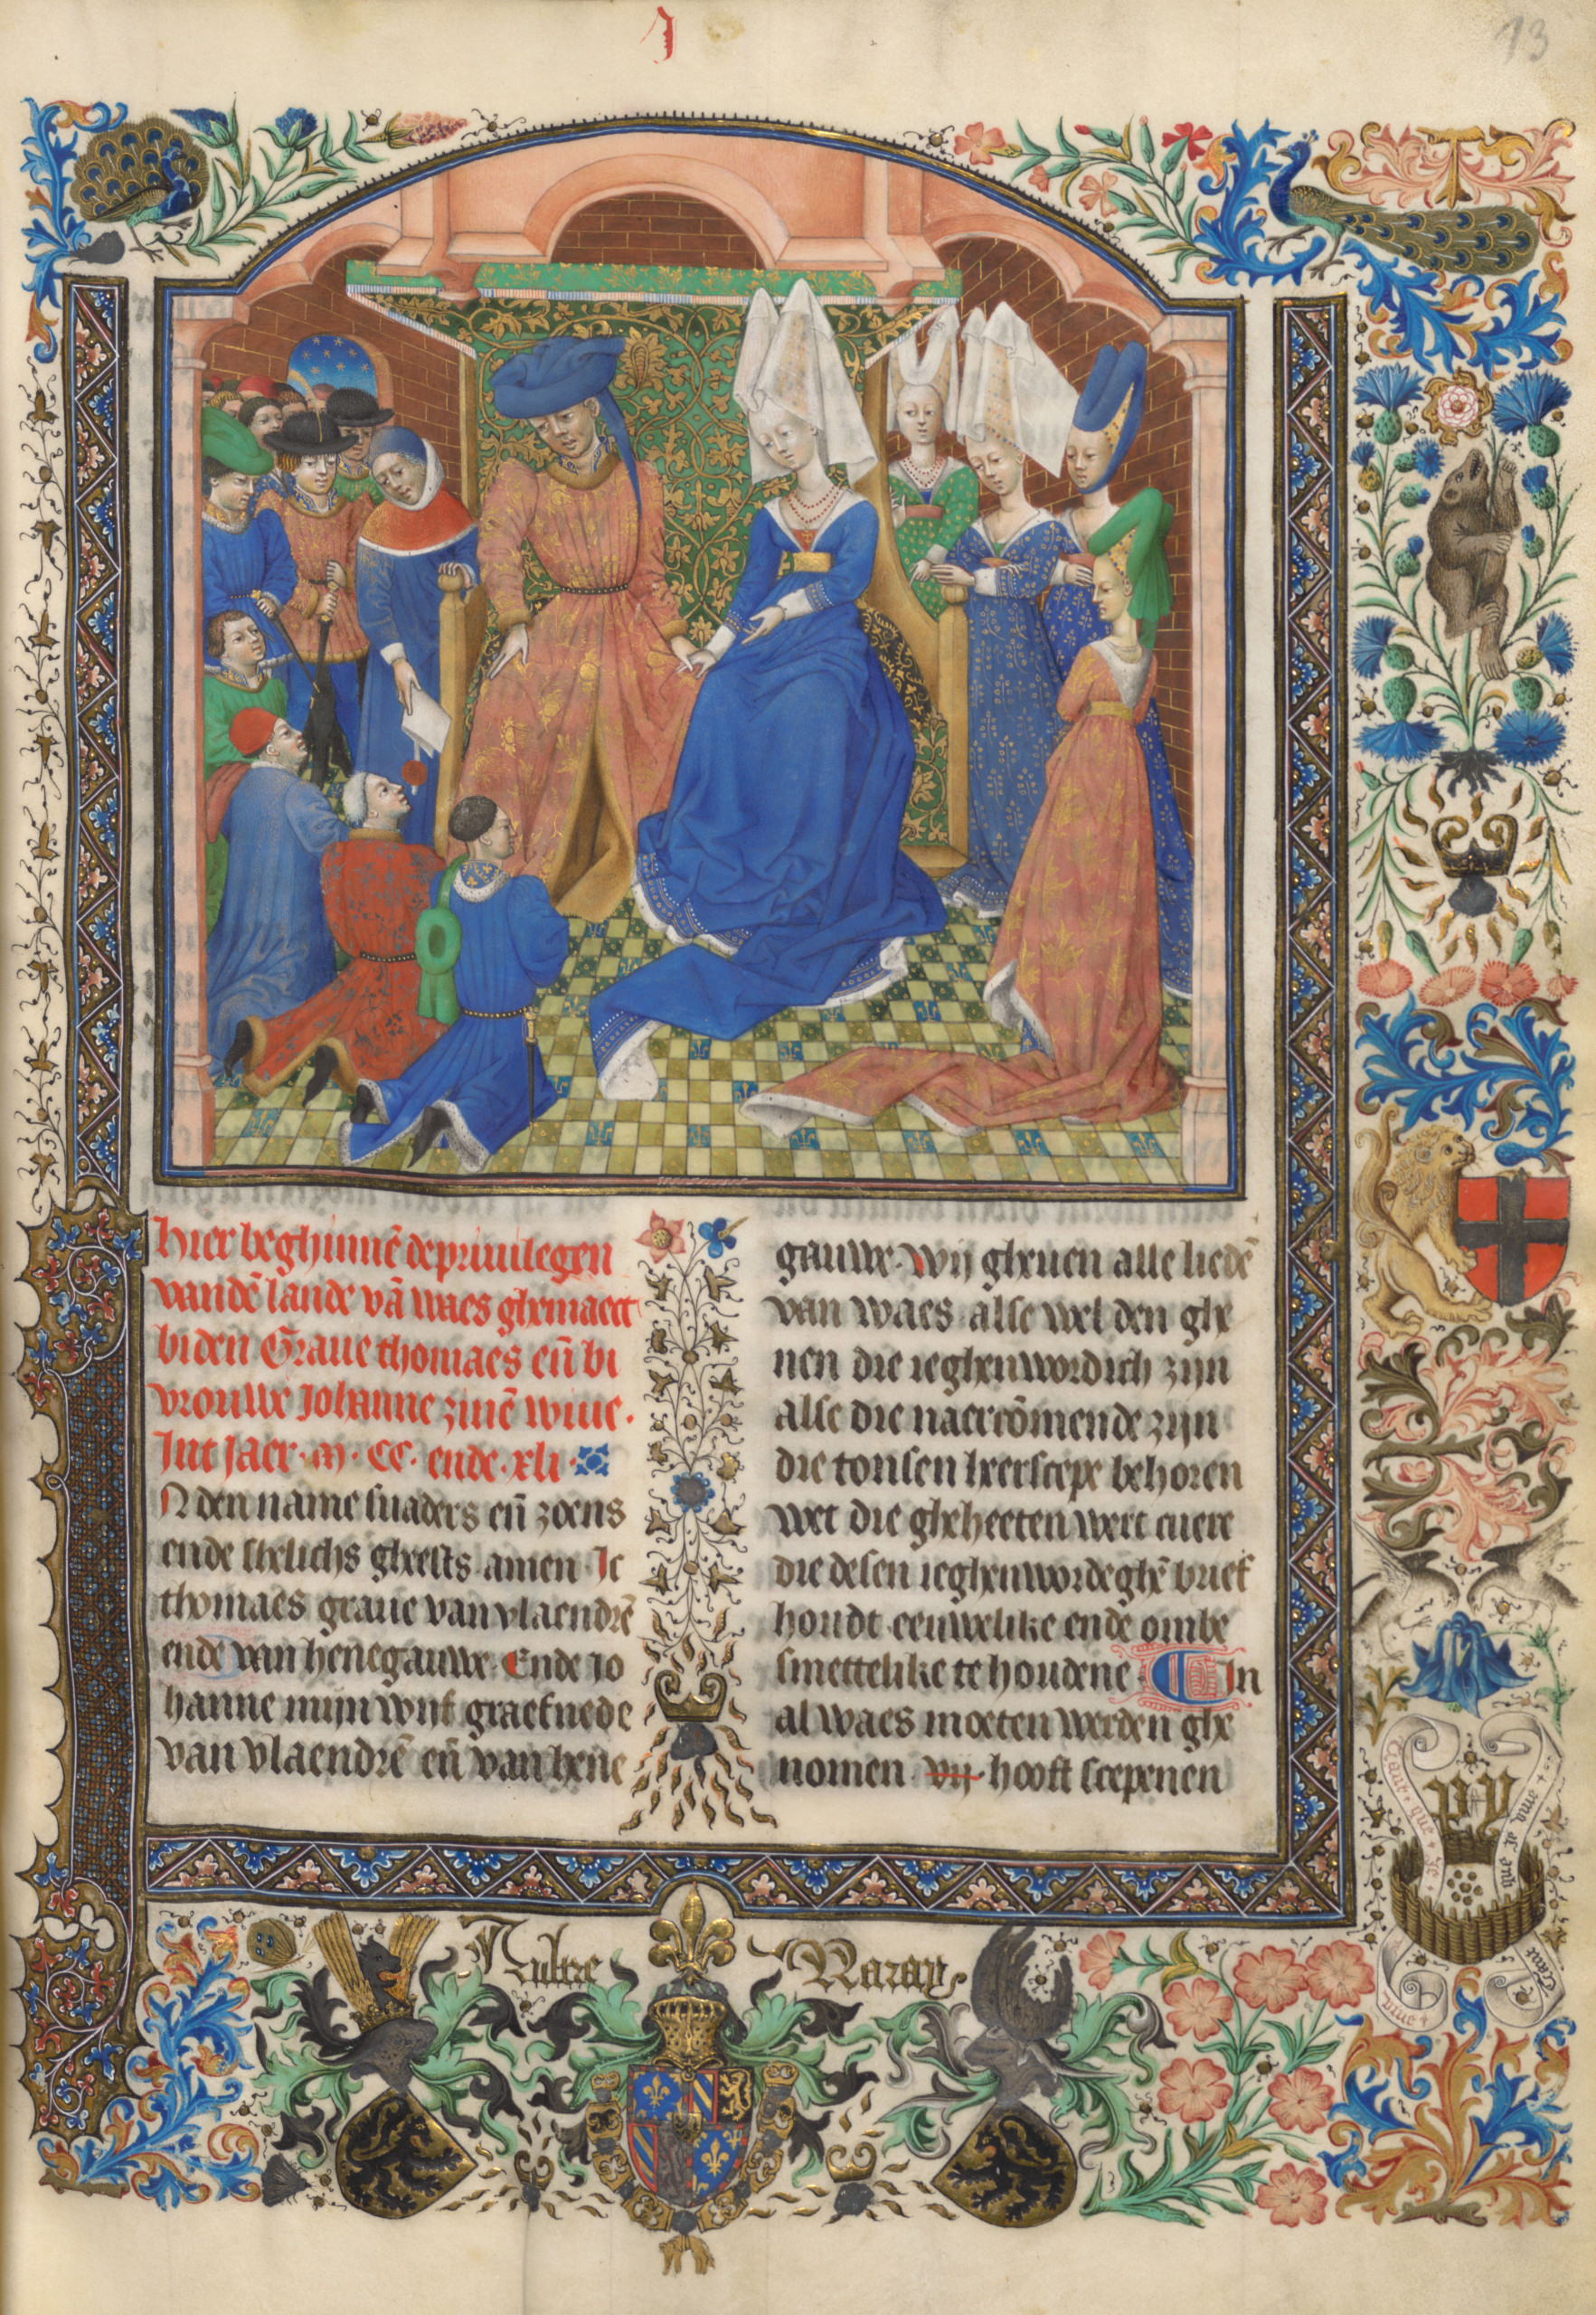 J
13
Hier beghinnē de priuilegen
vandē lande vā waes ghemaect
bi den Graue thomaes en̄ bi
vrouwe Johanne zinē wiue.
Int Jaer .M. CC. ende .xli.
N den name svaders en̄ zoens
ende shelichs gheests amen Ic
thomaes graue van vlaendrē
ende van henegauwe. Ende Jo
hanne mijn wijf graefnede
van vlaendrē en̄ van hene
gauwe. wij gheuen alle liedē
van waes alse wel den ghe
nen die ieghenwordich zijn
alse die naercōmende zijn
die tonsen heerscepe behoren
wet die gheheeten wert cuere
die desen ieghenwordeghē brief
houdt eeuwelike ende ombe
smettelike te houdene. In
al waes moeten werden ghe
nomen vij hooft scepenen
Aultre Naray